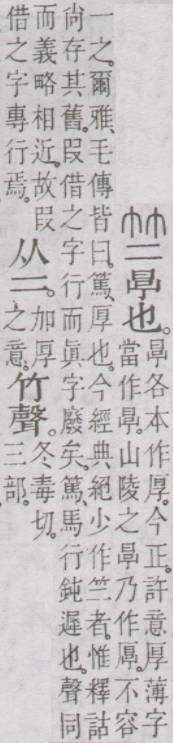 竺㫗也。
㫗各本作厚。今正。許意厚薄字
當作㫗。山陵之㫗乃作厚。不容
一之。爾雅、毛傳皆曰。篤、厚也。今經典絕少作竺者。惟釋詁
尚存其舊。叚借之字行而眞字廢矣。篤、馬行鈍遲也。聲同
而義略相近。故叚
借之字專行焉。
从二。
加厚
之意。
竹聲。
冬毒切。
三部。